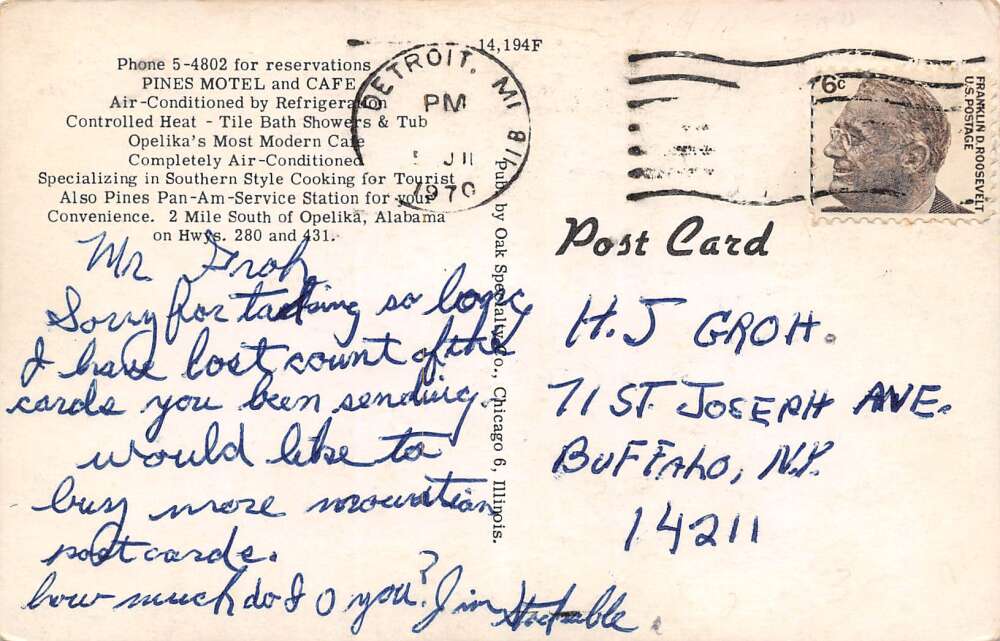 14,194F
Phone 5-4802 for reservations
PINES MOTEL and CAFE
Air-Conditioned by Refrigeration
Controlled Heat - Tile Bath Showers & Tub
Opelika's Most Modern Cafe
Completely Air-Conditioned
Specializing in Southern Style Cooking for Tourist
Also Pines Pan-Am-Service Station for your
Convenience. 2 Mile South of Opelika, Alabama
on Hwys. 280 and 431.
DETROIT, MI 481
PM
1970
6c
FRANKLIN D. ROOSEVELT
U.S. POSTAGE
Pub. by Oak Specialty Co., Chicago 6, Illinois.
Post Card
Mr Groh
Sorry for taking so long
I have lost count of the
cards you been sending.
would like to
buy more mountian
postcards.
how much do I O you? Jim
H.J GROH.
71 ST. JOSEPH AVE.
BUFFALO, N.Y.
14211